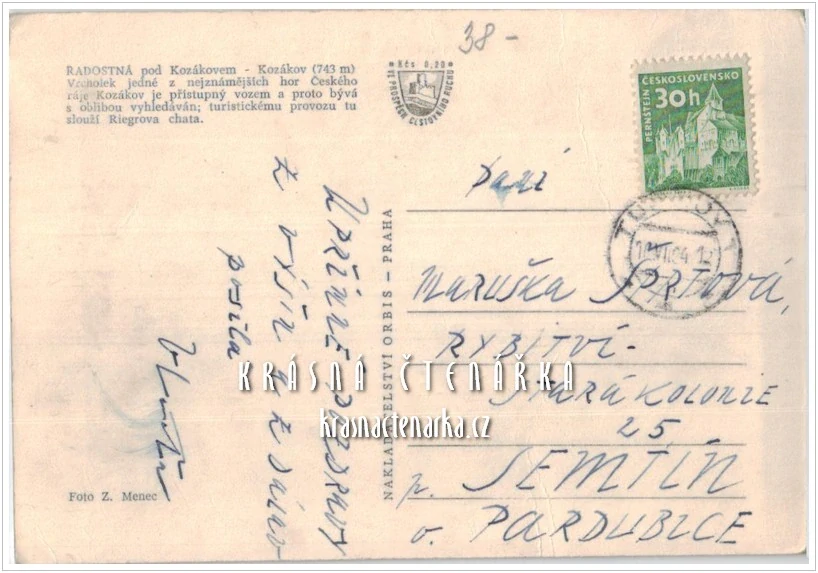 38-
RADOSTNÁ pod Kozákovem - Kozákov (743 m)
Vrcholek jedné z nejznámějších hor Českého
ráje Kozákov je přístupný vozem a proto bývá
s oblibou vyhledáván; turistickému provozu tu
slouží Riegrova chata.
Kčs 0,20
VE PROSPĚCH CESTOVNÍHO RUCHU
ČESKOSLOVENSKO
30h
PERNŠTEJN
TURNOV 1
Upřímné pozdravy
z výšin
posílá
NAKLADATELSTVÍ ORBIS - PRAHA
Paní
MARUŠKA
RYBITVÍ-
STARÁ KOLONIE
25
p. SEMTÍN
o. PARDUBICE
KRÁSNÁ ČTENÁŘKA
krasnactenarka.cz
Foto Z. Menec